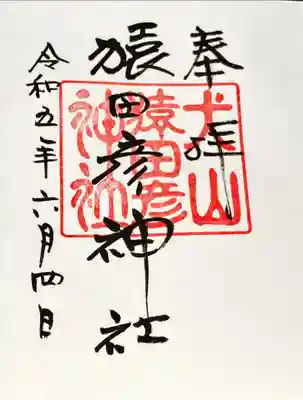 奉拝
犬山
猿田彦神社
猿田彦
神社
令和五年六月四日